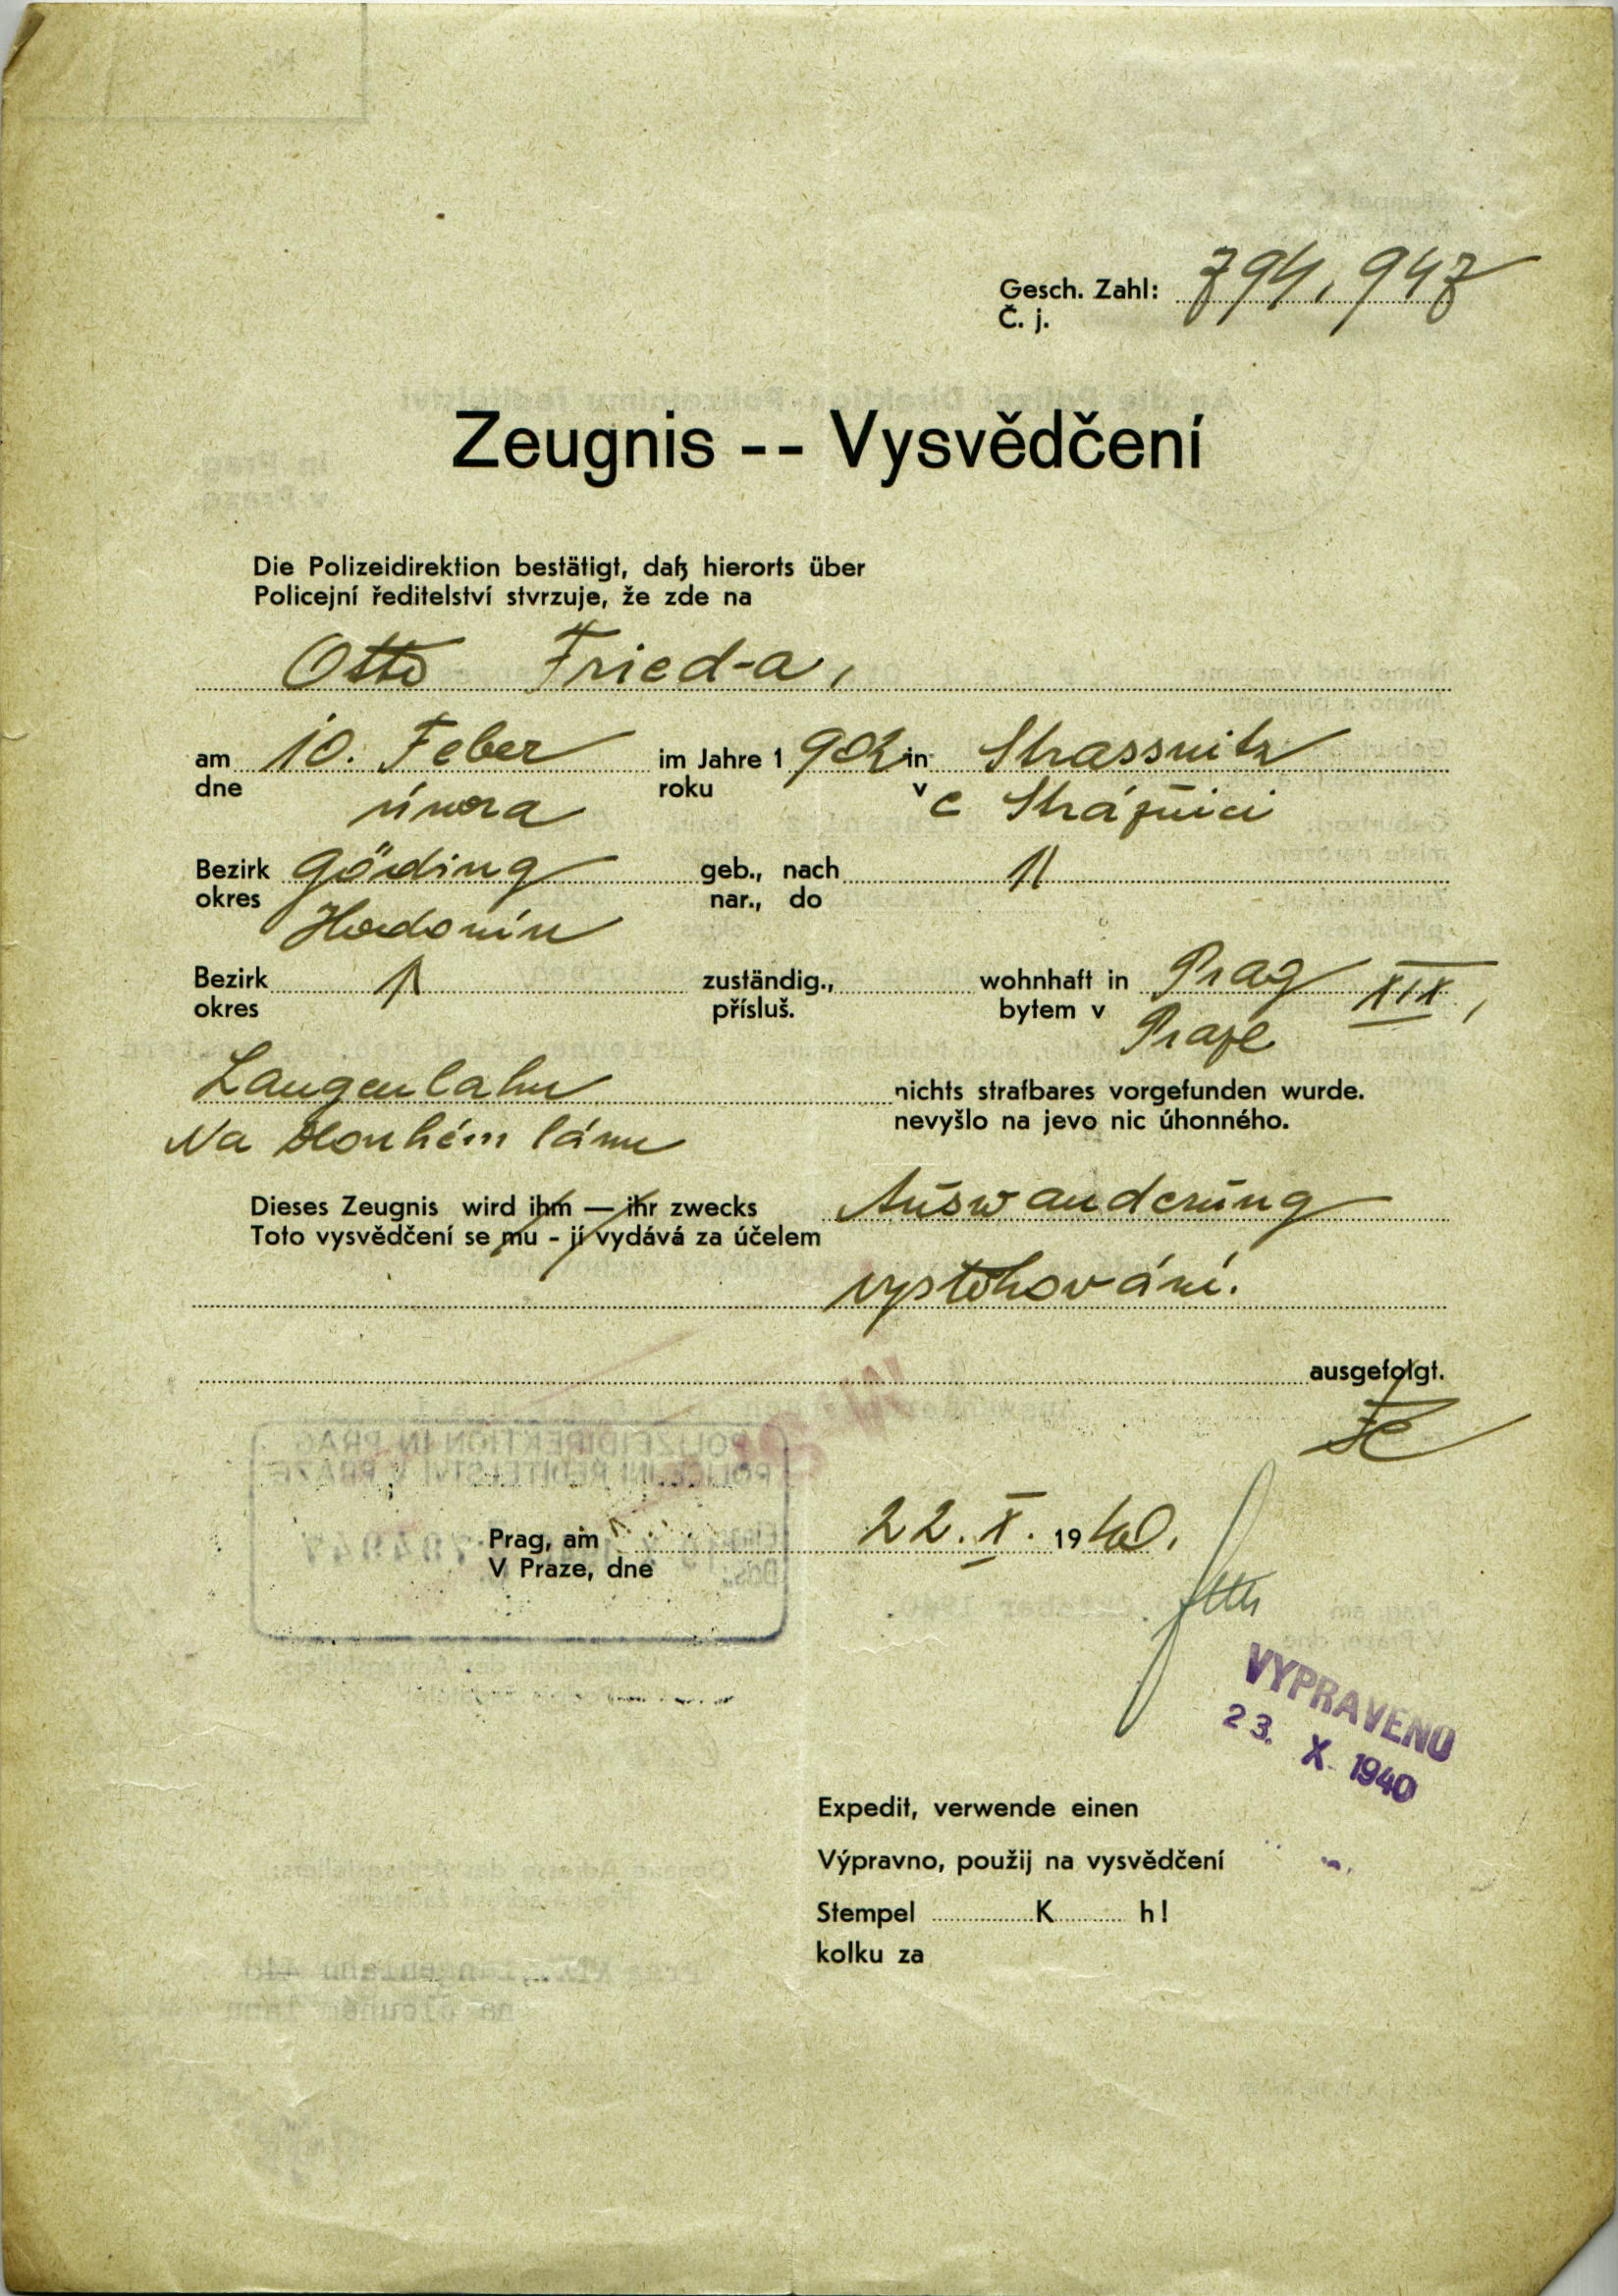 Gesch. Zahl: 794,947
Č. j.
Zeugnis -- Vysvědčení
Die Polizeidirektion bestätigt, daß hierorts über
Policejní ředitelství stvrzuje, že zde na
Otto Fried-a,
am 10. Feber im Jahre 1 902 in Strassnitz
dne února roku v e Strážnici
Bezirk Göding geb., nach "
okres Hodonín nar., do
Bezirk " zuständig., wohnhaft in Prag XIX,
okres přísluš. bytem v Praze
Langenlahn nichts strafbares vorgefunden wurde.
Na Dlouhém lánu nevyšlo na jevo nic úhonného.
Dieses Zeugnis wird ihm — ihr zwecks Auswanderung
Toto vysvědčení se mu - jí vydává za účelem
vystěhování.
ausgefolgt.
Prag, am 22. X. 1940.
V Praze, dne
VYPRAVENO
23. X. 1940
Expedit, verwende einen
Výpravno, použij na vysvědčení
Stempel K h!
kolku za